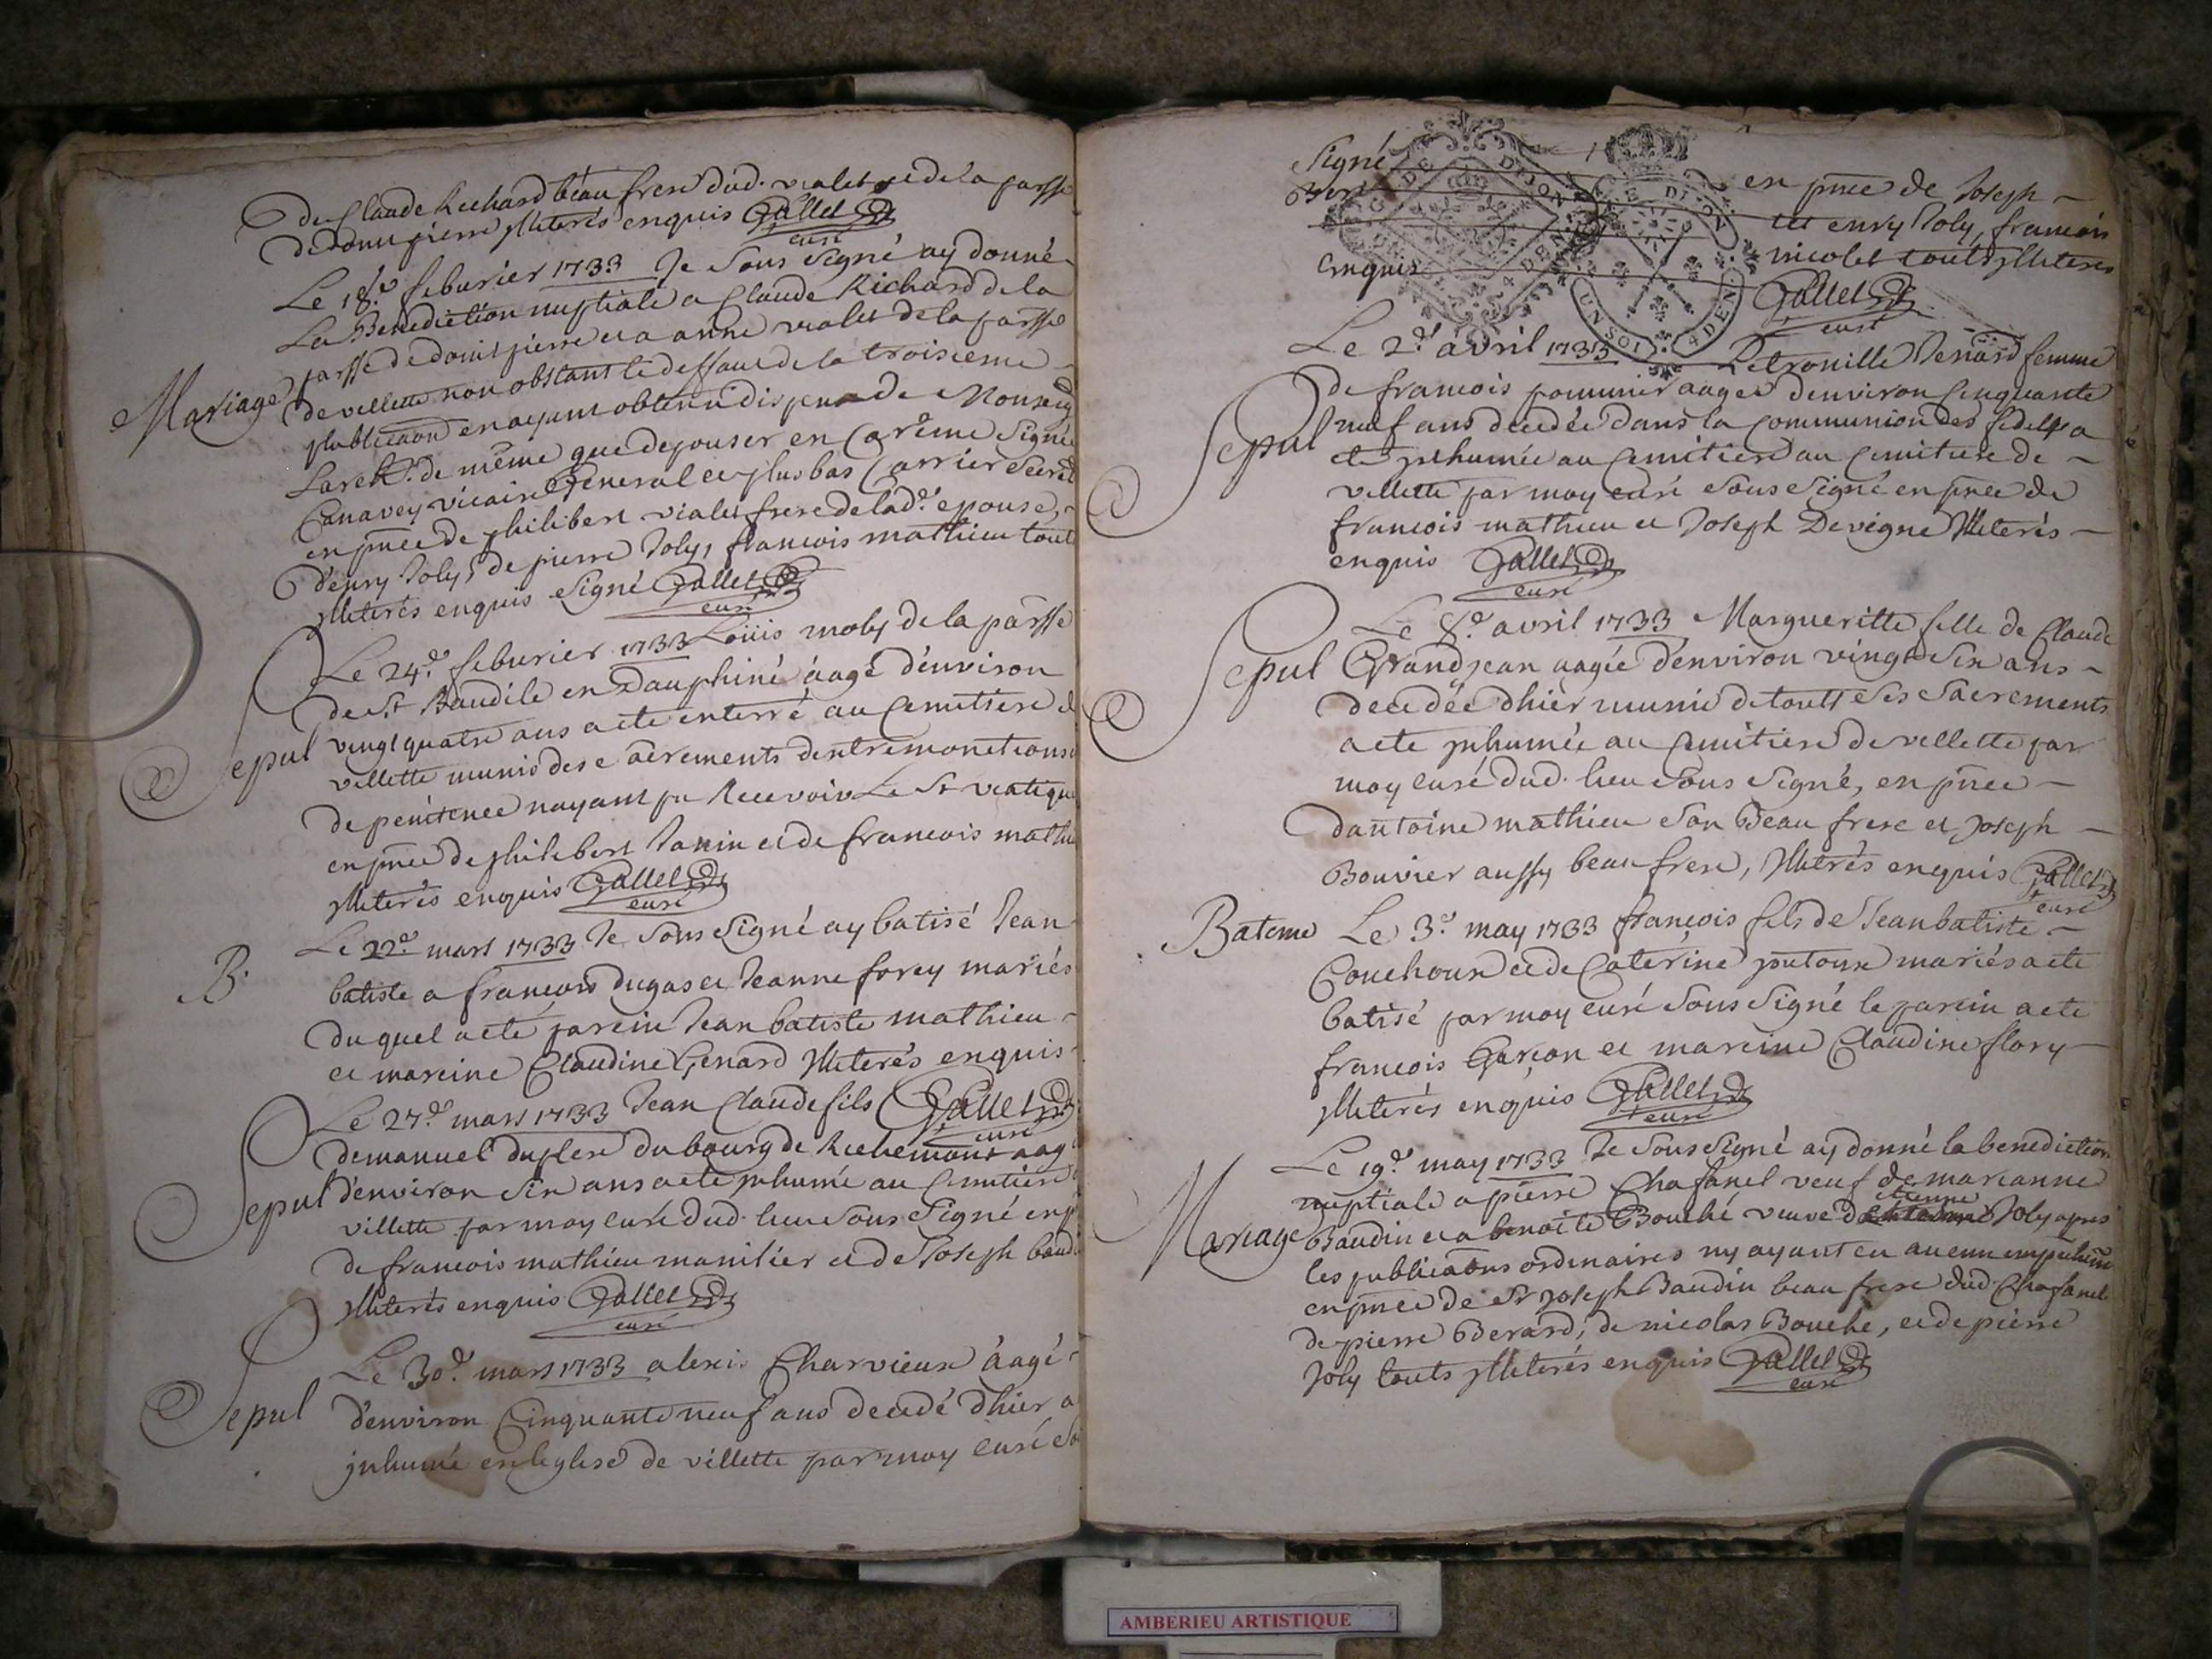 de Claude Richard beau frere dud. violet et de la parsse
de domt pierre jlliterés enquis Gallet
curé
Le 18.e feburier 1733 Je sous signé ay donné
La Benediction nuptiale a Claude Richard de la
parsse de domt pierre et a anne violet de la parsse
Mariage
de villette non obstant le deffaut de la troisieme
publicaon en ayant obtenu dispense de Monseig
Larch. de même que depouser en Carême signée
vicaire General et plus bas Carrier secret
en pnce de philibert violet frere de lad.e epouse,
d'enry Joly, de pierre Joly, francois mathieu tout
jlliterés enquis signé Gallet
curé
Le 24.e feburier 1733 Loüis moly de la parsse
de St Baudile en Dauphiné âagé d'environ
Sepul vingt quatre ans a ete enterré au Cemitiere d
villette munis des sacrements dextremonction
de penitence nayant pu Recevoir Le St viatique
en pnce de philibert Janin et de francois mathie
jlliterés enquis Gallet
curé
B.
Le 22.e mars 1733 Je sous signé ay batisé Jean
batiste a francois dugas et Jeanne forey mariés
du quel a eté parein Jean batiste mathieu
et mareine Claudine Genard jlliterés enquis
Gallet
curé
Le 27.e mars 1733 Jean Claude fils
demanuel duplere du bourg de Richemont aag
Sepul d'environ six ans a ete jnhumé au Cemitiere
villette par moy curé dud. lieu sous signé en p
de francois mathieu manilier et de Joseph baudi
jlliterés enquis Gallet
curé
Le 30.e mars 1733 alexis Charvieux âagé
Sepul d'environ Cinquante neuf ans decedé dhier a
jnhumé en leglise de villette par moy curé so
Signé en pnce de Joseph
et enry Joly, francois
Enquis nicolet touts jlliteres
Gallet
curé
DE DIJON
4 DEN
UN SOL 4 DEN
Le 2.e avril 1733 Petronille Jenard femme
de francois pommier aagée d'environ Cinquante
Sepul neuf ans decedée dans la Communion des fideles a
ete jnhumée au Cemitiere au Cemitiere de
villette par moy curé sous signé en pnce de
francois mathieu et Joseph Devigne jlliterés
enquis Gallet
curé
Le 8.e avril 1733 Margueritte fille de Claude
Sepul Grandjean aagée d'environ vingt six ans
decedée dhier munie de touts ses sacrements
a ete jnhumée au Cemitiere de villette par
moy curé dud. lieu sous signé, en pnce
dantoine mathieu son Beau frere et Joseph
Bouvier aussy beau frere, jlliterés enquis Gallet
curé
Bateme Le 3.e may 1733 françois fils de Jean batiste
Couchoux et de Caterine poutoux mariés a ete
batisé par moy curé sous signé le parein a ete
francois Garçon et mareine Claudine flory
jlliterés enquis Gallet
curé
Le 19.e may 1733 Je sous signé ay donné la benediction
nuptiale a pierre Chafanel veuf de marianne
etienne
Mariage Baudin et a benoite Bouché veuve d Joly apres
les publicaons ordinaires ny ayant eu aucun empechem
en pnce de Sr Joseph Baudin beau frere dud. Chafanel
de pierre Berard, de nicolas Bouché, et de pierre
Joly touts jlliterés enquis Gallet
curé
AMBERIEU ARTISTIQUE